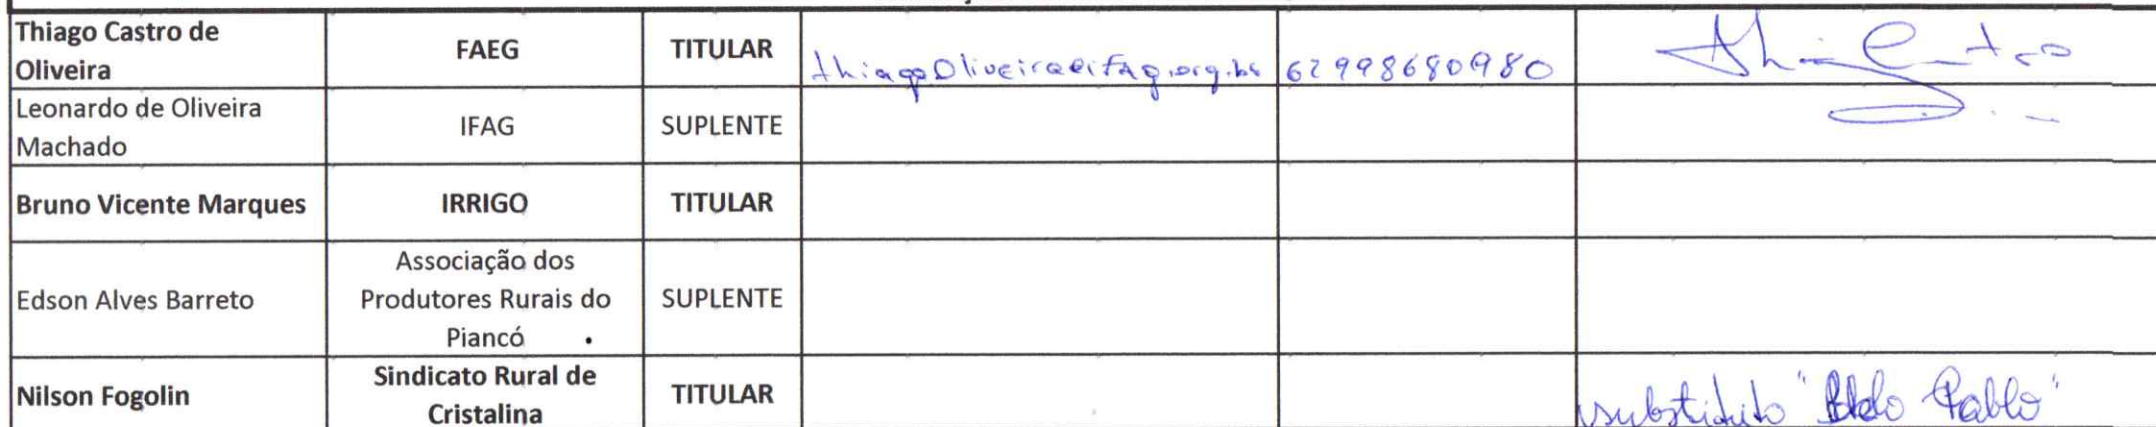 Thiago Castro de
Oliveira
FAEG
TITULAR
thiagoOliveira@ifag.org.br
62998680980
Leonardo de Oliveira
Machado
IFAG
SUPLENTE
Bruno Vicente Marques
IRRIGO
TITULAR
Edson Alves Barreto
Associação dos
Produtores Rurais do
Piancó
SUPLENTE
Nilson Fogolin
Sindicato Rural de
Cristalina
TITULAR
substituto " Pablo"